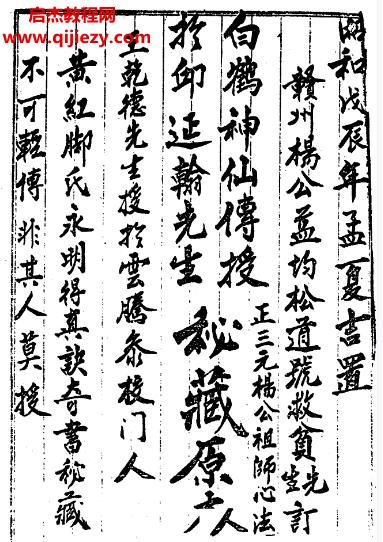 启杰教程网
www.qijiezy.com
昭和戊辰年孟夏吉置
贛州楊公益均松道號救貧先生訂
正三元楊公祖師心法
白鶴神仙傳授
於邱延翰先生 秘藏原
王乾德先生授於雲騰泰校门人
黃紅脚氏永明得真訣奇書秘藏
不可輕傳非其人莫授